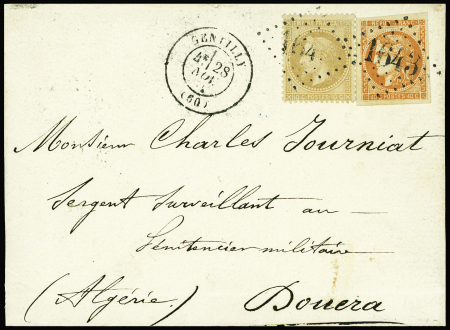 GENTILLY
4E 28
NOV.
(60)
1643
1643
Monsieur Charles Journiat
Sergent Surveillant au
Pénitencier militaire
(Algérie.) Douera